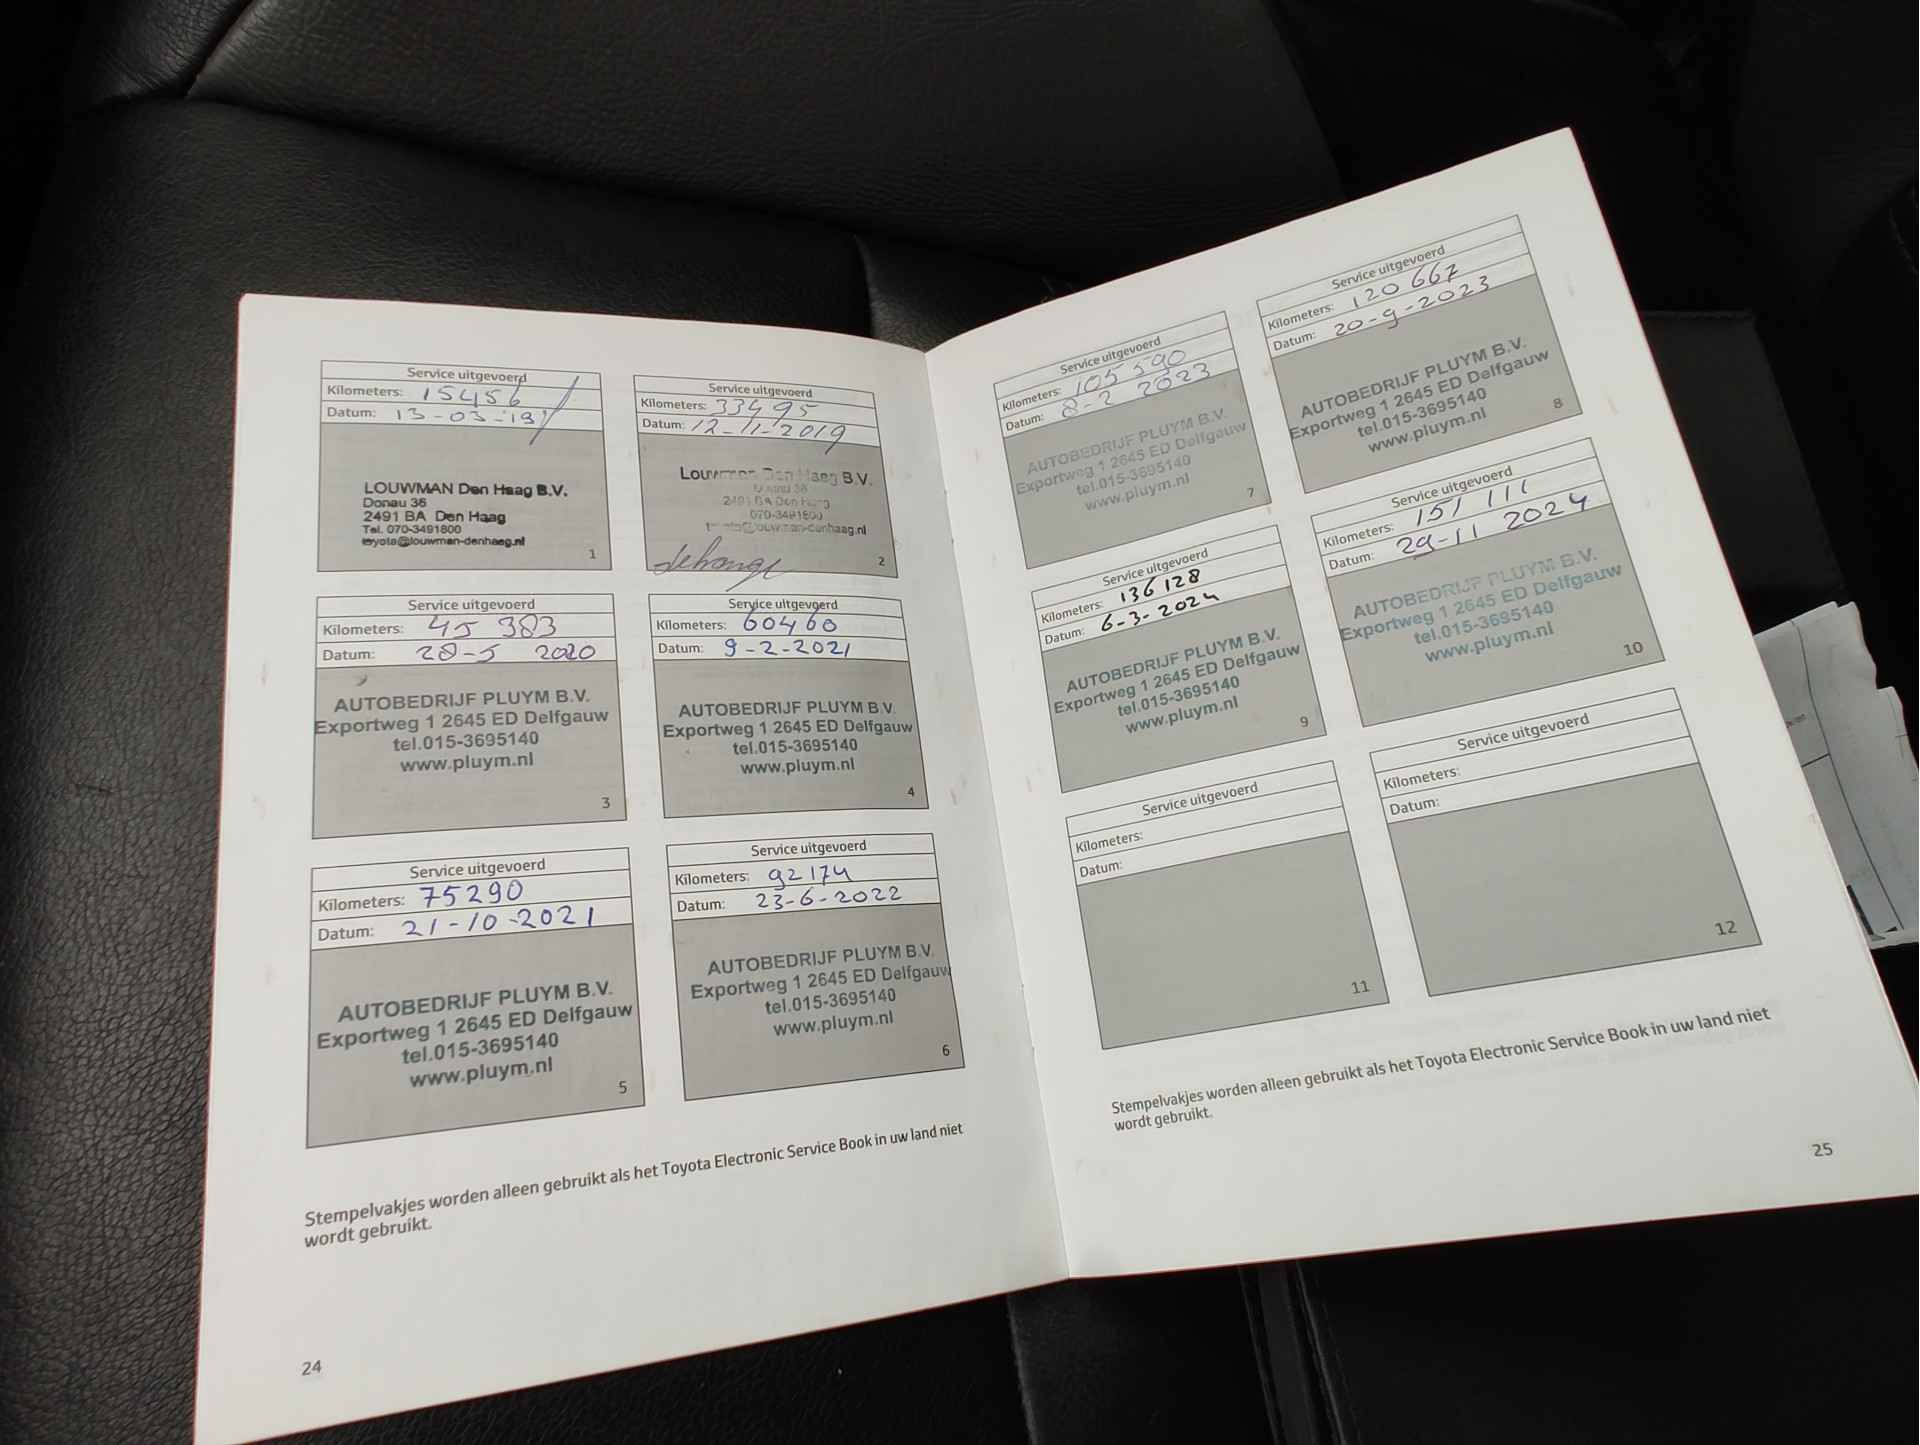 Service uitgevoerd
Kilometers: 15456
Datum: 13-03-'19
LOUWMAN Den Haag B.V.
Donau 36
2491 BA Den Haag
Tel. 070-3491800
toyota@louwman-denhaag.nl
1
Service uitgevoerd
Kilometers: 33495
Datum: 12-11-2019
Louwman Den Haag B.V.
Donau 36
2491 BA Den Haag
070-3491800
toyota@louwman-denhaag.nl
2
Service uitgevoerd
Kilometers: 45 383
Datum: 28-5 2020
AUTOBEDRIJF PLUYM B.V.
Exportweg 1 2645 ED Delfgauw
tel.015-3695140
www.pluym.nl
3
Service uitgevoerd
Kilometers: 60460
Datum: 9-2-2021
AUTOBEDRIJF PLUYM B.V.
Exportweg 1 2645 ED Delfgauw
tel.015-3695140
www.pluym.nl
4
Service uitgevoerd
Kilometers: 75290
Datum: 21-10-2021
AUTOBEDRIJF PLUYM B.V.
Exportweg 1 2645 ED Delfgauw
tel.015-3695140
www.pluym.nl
5
Service uitgevoerd
Kilometers: 92174
Datum: 23-6-2022
AUTOBEDRIJF PLUYM B.V.
Exportweg 1 2645 ED Delfgauw
tel.015-3695140
www.pluym.nl
6
Stempelvakjes worden alleen gebruikt als het Toyota Electronic Service Book in uw land niet
wordt gebruikt.
24
Service uitgevoerd
Kilometers: 105 590
Datum: 8-2 2023
AUTOBEDRIJF PLUYM B.V.
Exportweg 1 2645 ED Delfgauw
tel.015-3695140
www.pluym.nl
7
Service uitgevoerd
Kilometers: 120 667
Datum: 20-9-2023
AUTOBEDRIJF PLUYM B.V.
Exportweg 1 2645 ED Delfgauw
tel.015-3695140
www.pluym.nl
8
Service uitgevoerd
Kilometers: 136 128
Datum: 6-3-2024
AUTOBEDRIJF PLUYM B.V.
Exportweg 1 2645 ED Delfgauw
tel.015-3695140
www.pluym.nl
9
Service uitgevoerd
Kilometers: 151 111
Datum: 29-11 2024
AUTOBEDRIJF PLUYM B.V.
Exportweg 1 2645 ED Delfgauw
tel.015-3695140
www.pluym.nl
10
Service uitgevoerd
Kilometers:
Datum:
11
Service uitgevoerd
Kilometers:
Datum:
12
Stempelvakjes worden alleen gebruikt als het Toyota Electronic Service Book in uw land niet
wordt gebruikt.
25